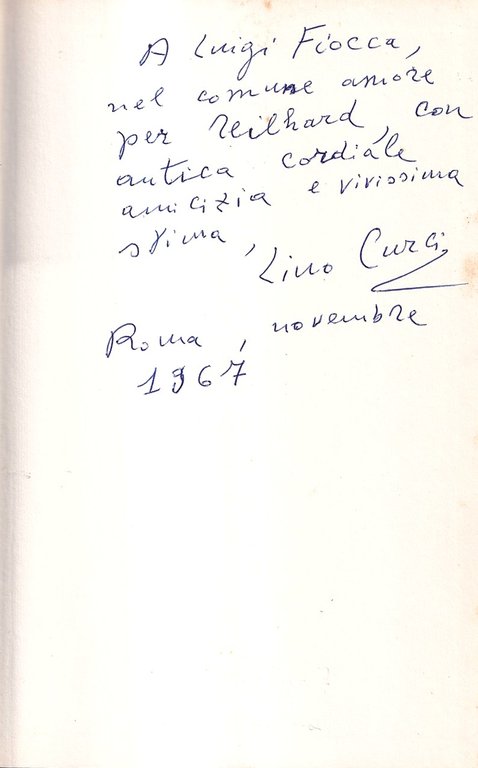 A Luigi Fiocca,
nel comune amore
per Teilhard, con
antica cordiale
amicizia e vivissima
stima,
Lino Curci
Roma, novembre
1967